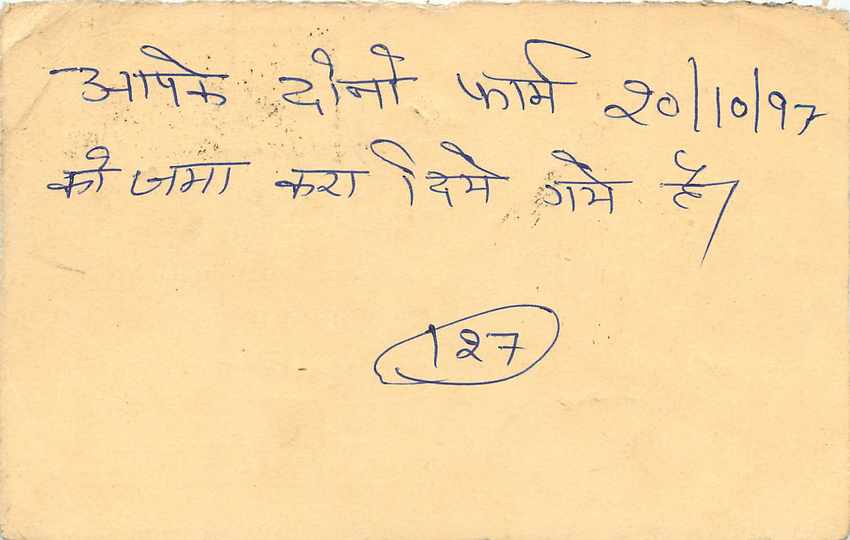 आपके दोनो फार्म २०/10/97
को जमा करा दिये गये है।
127